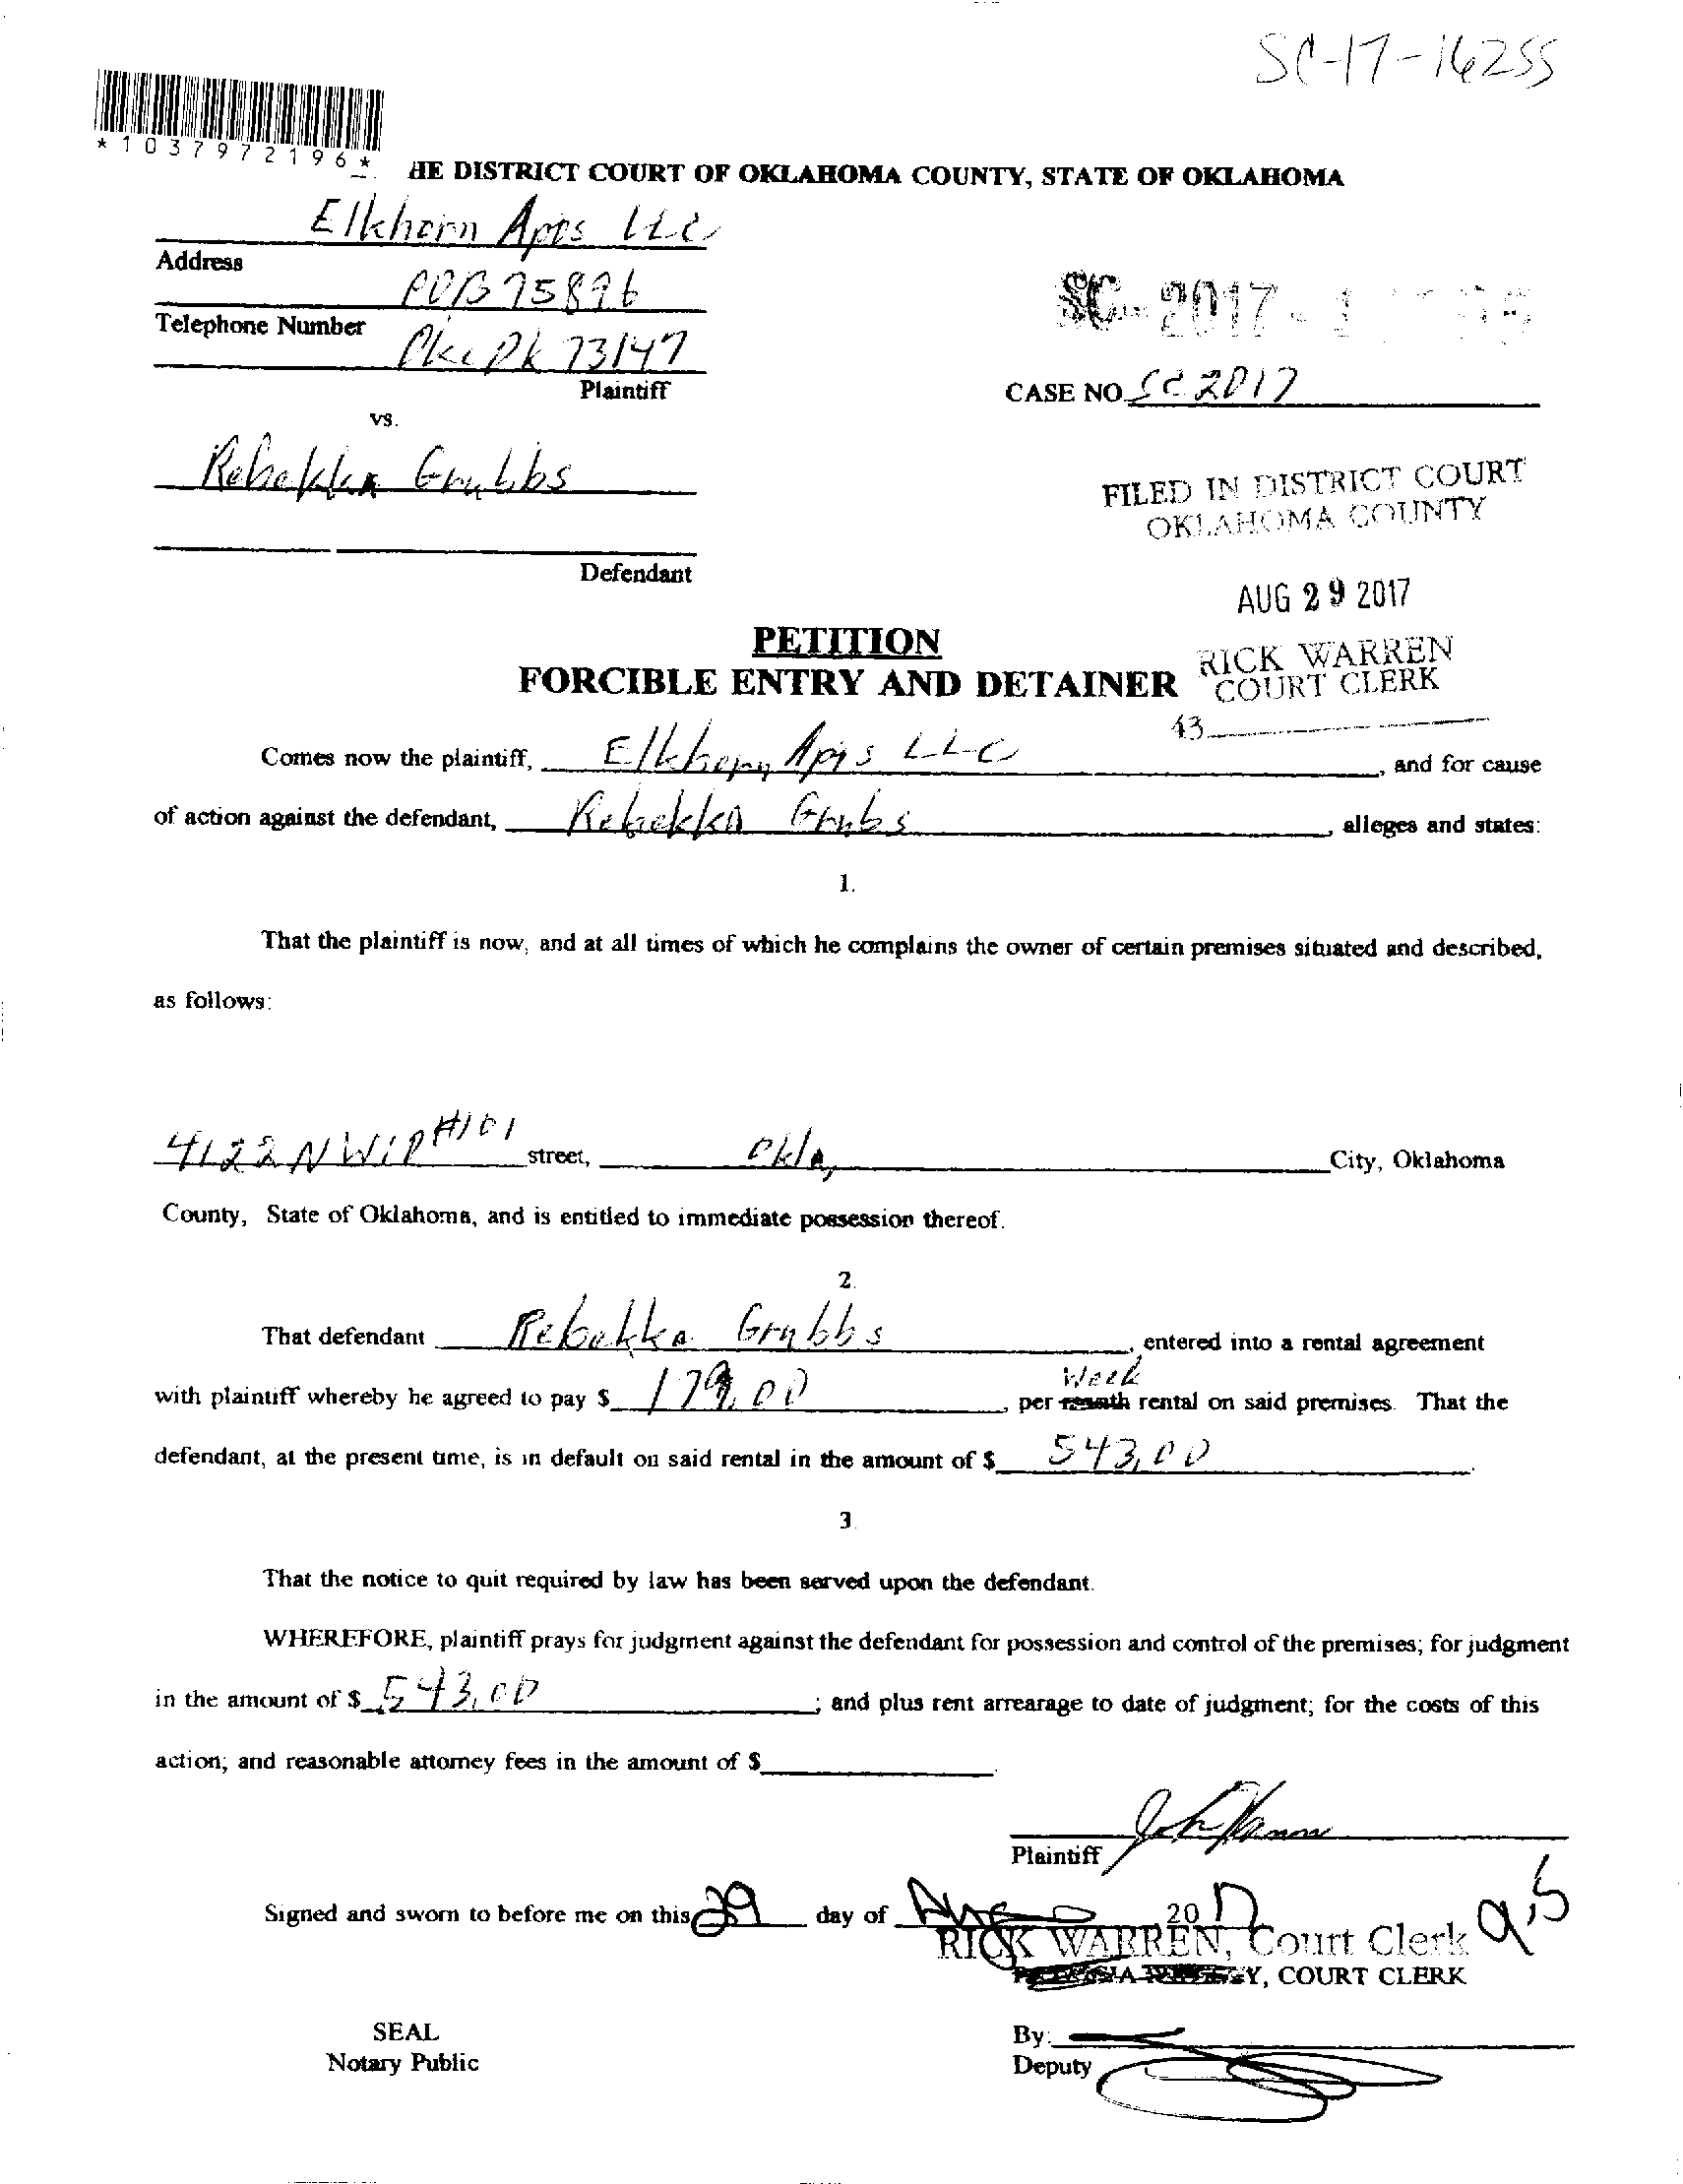 SC-17-16255
*1037972196*
HE DISTRICT COURT OF OKLAHOMA COUNTY, STATE OF OKLAHOMA
Elkhorn Apts LLC
Address
POB 75896
Telephone Number
73147
Plaintiff
SC-2017-1
CASE NO. SC 2017
vs.
Rebekka Grubbs
Defendant
FILED IN DISTRICT COURT
OKLAHOMA COUNTY
AUG 29 2017
RICK WARREN
COURT CLERK
43
PETITION
FORCIBLE ENTRY AND DETAINER
Comes now the plaintiff, Elkhorn Apts LLC, and for cause
of action against the defendant, Rebekka Grubs, alleges and states:
1.
That the plaintiff is now, and at all times of which he complains the owner of certain premises situated and described,
as follows:
4122 NW 10 #101 street, Okla, City, Oklahoma
County, State of Oklahoma, and is entitled to immediate possession thereof.
2.
That defendant Rebekka Grubbs, entered into a rental agreement
Week
with plaintiff whereby he agreed to pay $ 179.00, per month rental on said premises. That the
defendant, at the present time, is in default on said rental in the amount of $ 543.00.
3.
That the notice to quit required by law has been served upon the defendant.
WHEREFORE, plaintiff prays for judgment against the defendant for possession and control of the premises; for judgment
in the amount of $ 543.00; and plus rent arrearage to date of judgment; for the costs of this
action; and reasonable attorney fees in the amount of $
Plaintiff
Signed and sworn to before me on this 29 day of Aug 2017
RICK WARREN, Court Clerk
Y, COURT CLERK
SEAL
Notary Public
By:
Deputy